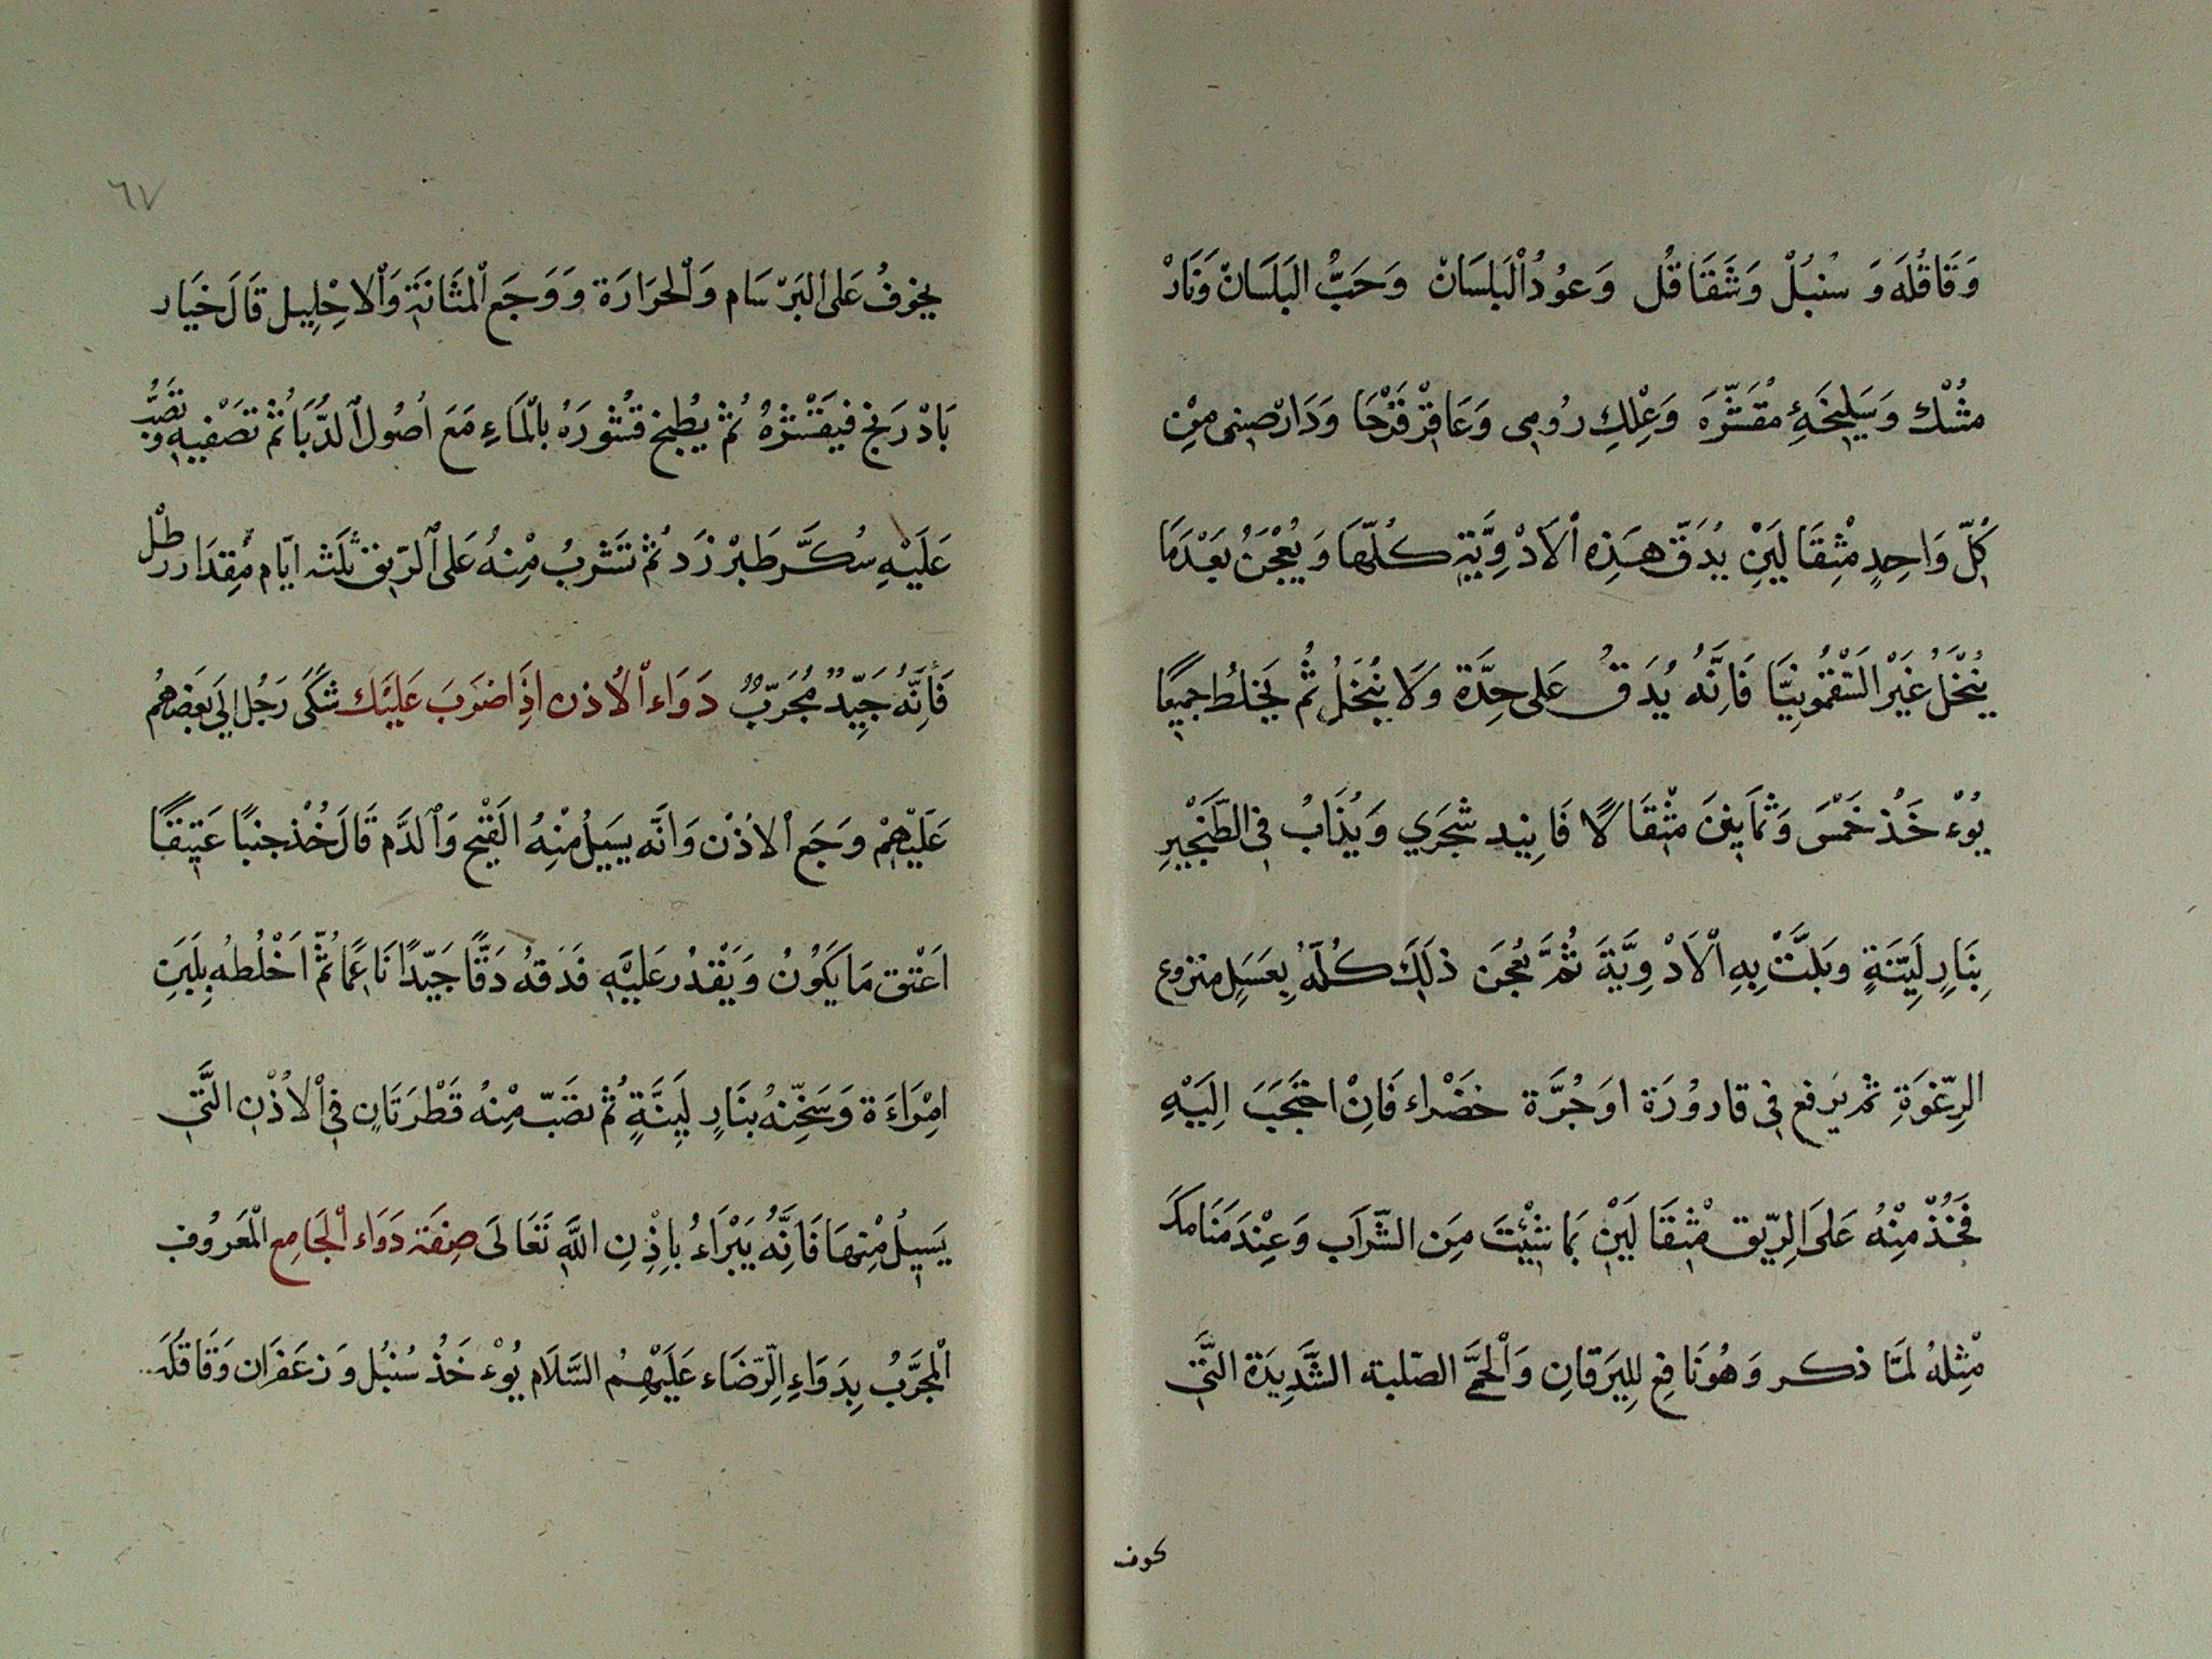 وَقَاقُلَه وَ سُنبُلْ وَشَقَاقُل وَعُودُ اْلبَلسَانْ وَحَبُّ البَلَسَانْ وَنَارْ
مُشْك وَسَلِيخَةِ مُقَشَّرَه وَعِلِكِ رُومِى وَعَاقِرْقَرْحَا وَدَارْصِينِى مِنْ
كُلِّ وَاحِدٍ مِثْقَالَيْنِ يُدَقّ هَذِهِ اْلاَدْوِيَّةِ كُلّهَا وَيُعْجَنُ بَعْدَمَا
يُنْخَلُ غَيْرَ السَّقْمُونِيَّا فَاِنَّهُ يُدَقُ عَلى حِدَّة وَلَا يُنْخَلُ ثُم يَخلُط جَمِيعًا
يُوْ خَذْ خَمْسَ وَثمَانِينَ مثْقَالًا فَانِيد شْجَرَي وَيُذَابُ فِى الطَّنْجِيرِ
بِنَارٍ لَيِّنَةٍ وبَلَتَّ بِهِ اْلاَدْوِيَّةَ ثُمَّ يُعجَن ذلَكِ كُلّهُ بِعَسَلٍ منزوع
الرِّغوَةِ ثمّ يَرفع فِى قارُورَة اوَ جُرَّة خَضْراء فَاِنْ احتَجَبَ اِلَيْهِ
فَخُذْ مِنْهُ عَلىَ الِرّيق مْثِقَالَيْنِ بَما شِيْتَ مِنَ الشَّرَاَب وَعِنْدَ مَنَامكَ
مْثِلهُ لمَا ذكر وَهُوَ نَافِع لِليَرَقانِ وَاْلحَمَّى الصّلبة الشَّدِيدَة التَّى
كوف
٦٧
يخوفُ عَلى البَرْسَام وَاْلحَرَارَة وَوَجَع اْلمَثَانَةِ وَاْلاحْلِيِل قَالَ خَيَار
بَادْرَنج فيَقَشْرهُ ثُم يُطبخ قُشورَهُ بالْمَاءِ مَعَ اصُول الدُّبَا ثُم تصَفِيهِ وَ تصُبُّ
عَلَيْهِ سُكَّر طَبَرْزَد ثُم تَشَرْبُ مِنْهُ عَلىَ الرّيق ثلَثة ايّام مْقِدَار رطْل
فَاْنَّهُ جَيِّدٌ مُجَرّبٌ دَوَاء اْلأذن اِذَا ضَرَبَ عَلَيْك شَكَى رَجُل الَى بَعَضهمُ
عَلَيْهِمْ وَجَع اْلاذُنْ وَانَّه يَسِيلُ مِنْهُ القَيْح وَالدَّم قَالَ خُذْ جنبًا عَتِيقًا
اعْتق مَا يَكُونُ وَيَقْدُر عَليَّهِ فَدَقهُ دَقًّا جَيّدًا نَاعمًا ثُمّ اَخْلُطهُ بِلَبَنِ
امْرَاءَة وَسَخِّنهُ بنَارٍ لَيِنَةٍ ثُم تصَبّ مْنِهُ قَطْرَتَانِ فِى اْلاُذْن التَّى
يَسِيلُ مْنِهَا فَانَِّهُ يَبْرَاءُ بِاِذْنِ اللَّهِ تَعَالَى صِفَة دَوَاء الْجَامِع الْمَعَرُوف
اْلمجَرَّبُ بِدَوَاءِ الِرّضَاء عَلَيْهِمُ السَّلَام يُوْ خَذُ سُنبُل وَ زعَفَرَان وَقَاقُلَه